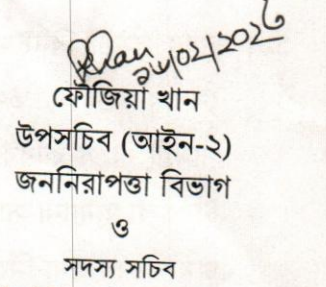 ফৌজিয়া খান
উপসচিব (আইন-২)
জননিরাপত্তা বিভাগ
ও
সদস্য সচিব